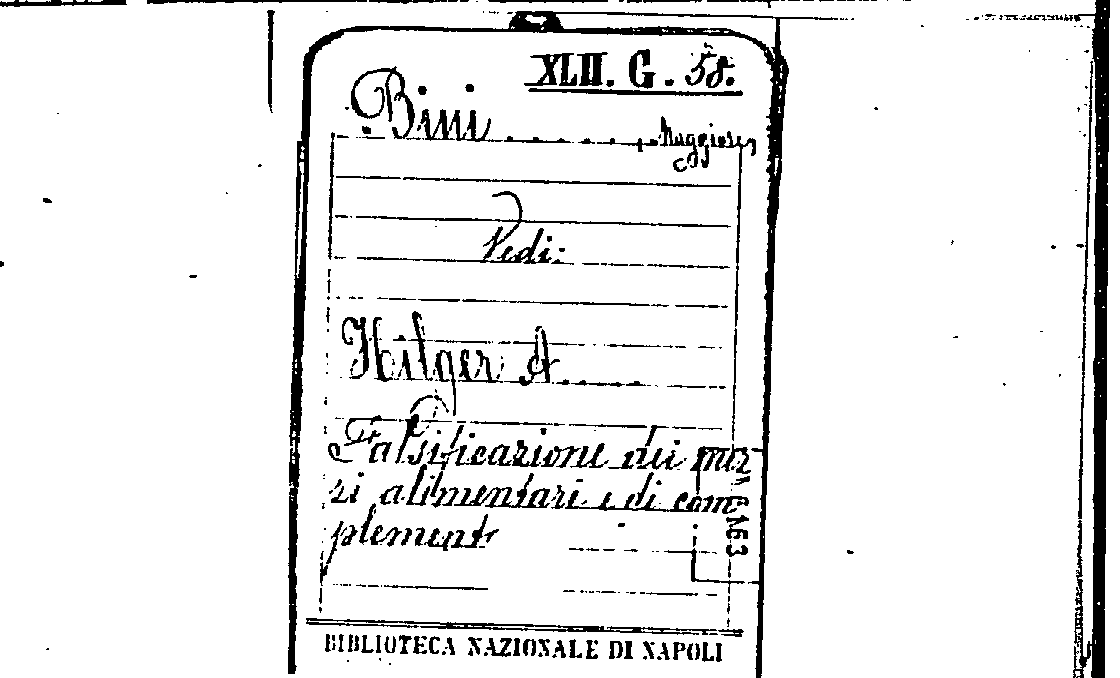 XLII. G. 58.
Bini . . . . . . , Maggiore,
Vedi:
Hilger A. . . . . .
Falsificazione dei mez
zi alimentari e di com
plement
BIBLIOTECA NAZIONALE DI NAPOLI